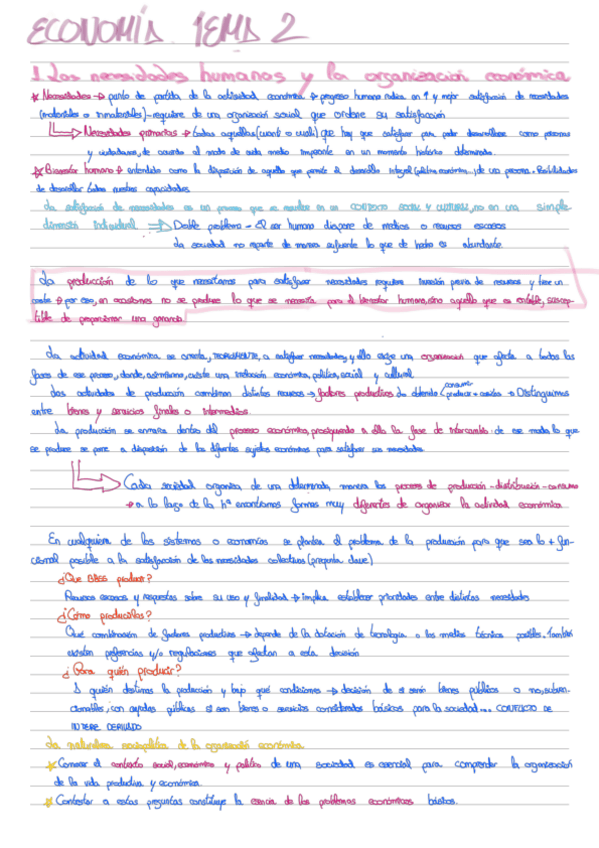 ECONOMÍA. TEMA 2
1. Las necesidades humanas y la organización económica
* Necesidades → punto de partida de la actividad económica → progreso humano radica en ↑ y mejor satisfacción de necesidades
(materiales o inmateriales) - requiere de una organización social que ordene su satisfacción
Necesidades primarias → todas aquellas (cuanti o cuali) que hay que satisfacer para poder desarrollarse como personas
y ciudadanos, de acuerdo al modo de vida medio imperante en un momento histórico determinado.
* Bienestar humano → entendido como la disposición de aquello que permite el desarrollo integral (político, económico...) de una persona. Posibilidades
de desarrollar todas nuestras capacidades.
La satisfacción de necesidades es un proceso que se realiza en un CONTEXTO SOCIAL Y CULTURAL, no en una simple
dimensión individual ⇒ Doble problema - El ser humano dispone de medios o recursos escasos
La sociedad no reparte de manera suficiente lo que de hecho es abundante
La producción de lo que necesitamos para satisfacer necesidades requiere inversión previa de recursos y tiene un
coste → por eso, en ocasiones no se produce lo que se necesita para el bienestar humano, sino aquello que es rentable, suscep-
tible de proporcionar una ganancia.
La actividad económica se orienta, TEÓRICAMENTE, a satisfacer necesidades, y ello exige una organización que afecta a todas las
fases de ese proceso, donde, asimismo, existe una motivación económica, política, social y cultural.
Las actividades de producción combinan distintos recursos → factores productivos de obtención producir + consumir → Distinguimos
entre bienes y servicios finales o intermedios.
La producción se enmarca dentro del proceso económico, prosiguiendo a ella la fase de intercambio: de ese modo lo que
se produce se pone a disposición de los diferentes sujetos económicos para satisfacer sus necesidades.
Cada sociedad organiza de una determinada manera los procesos de producción - distribución - consumo
→ a lo largo de la hª encontramos formas muy diferentes de organizar la actividad económica
En cualquiera de los sistemas o economías se plantea el problema de la producción para que sea lo + fun-
cional posible a la satisfacción de las necesidades colectivas (pregunta clave)
¿Qué BBSS producir?
Recursos escasos y respuestas sobre su uso y finalidad → implica establecer prioridades entre distintas necesidades
¿Cómo producirlos?
Qué combinación de factores productivos → depende de la dotación de tecnología o los medios técnicos posibles. También
existen preferencias y/o regulaciones que afectan a esta decisión
¿Para quién producir?
A quién destinamos la producción y bajo qué condiciones → decisión de si serán bienes públicos o no, subven-
cionables, con ayudas públicas si son bienes o servicios considerados básicos para la sociedad... CONFLICTO DE
INTERÉS DERIVADO
La naturaleza sociopolítica de la organización económica.
* Conocer el contexto social, económico y político de una sociedad es esencial para comprender la organización
de la vida productiva y económica.
* Contestar a estas preguntas constituye la esencia de los problemas económicos básicos.